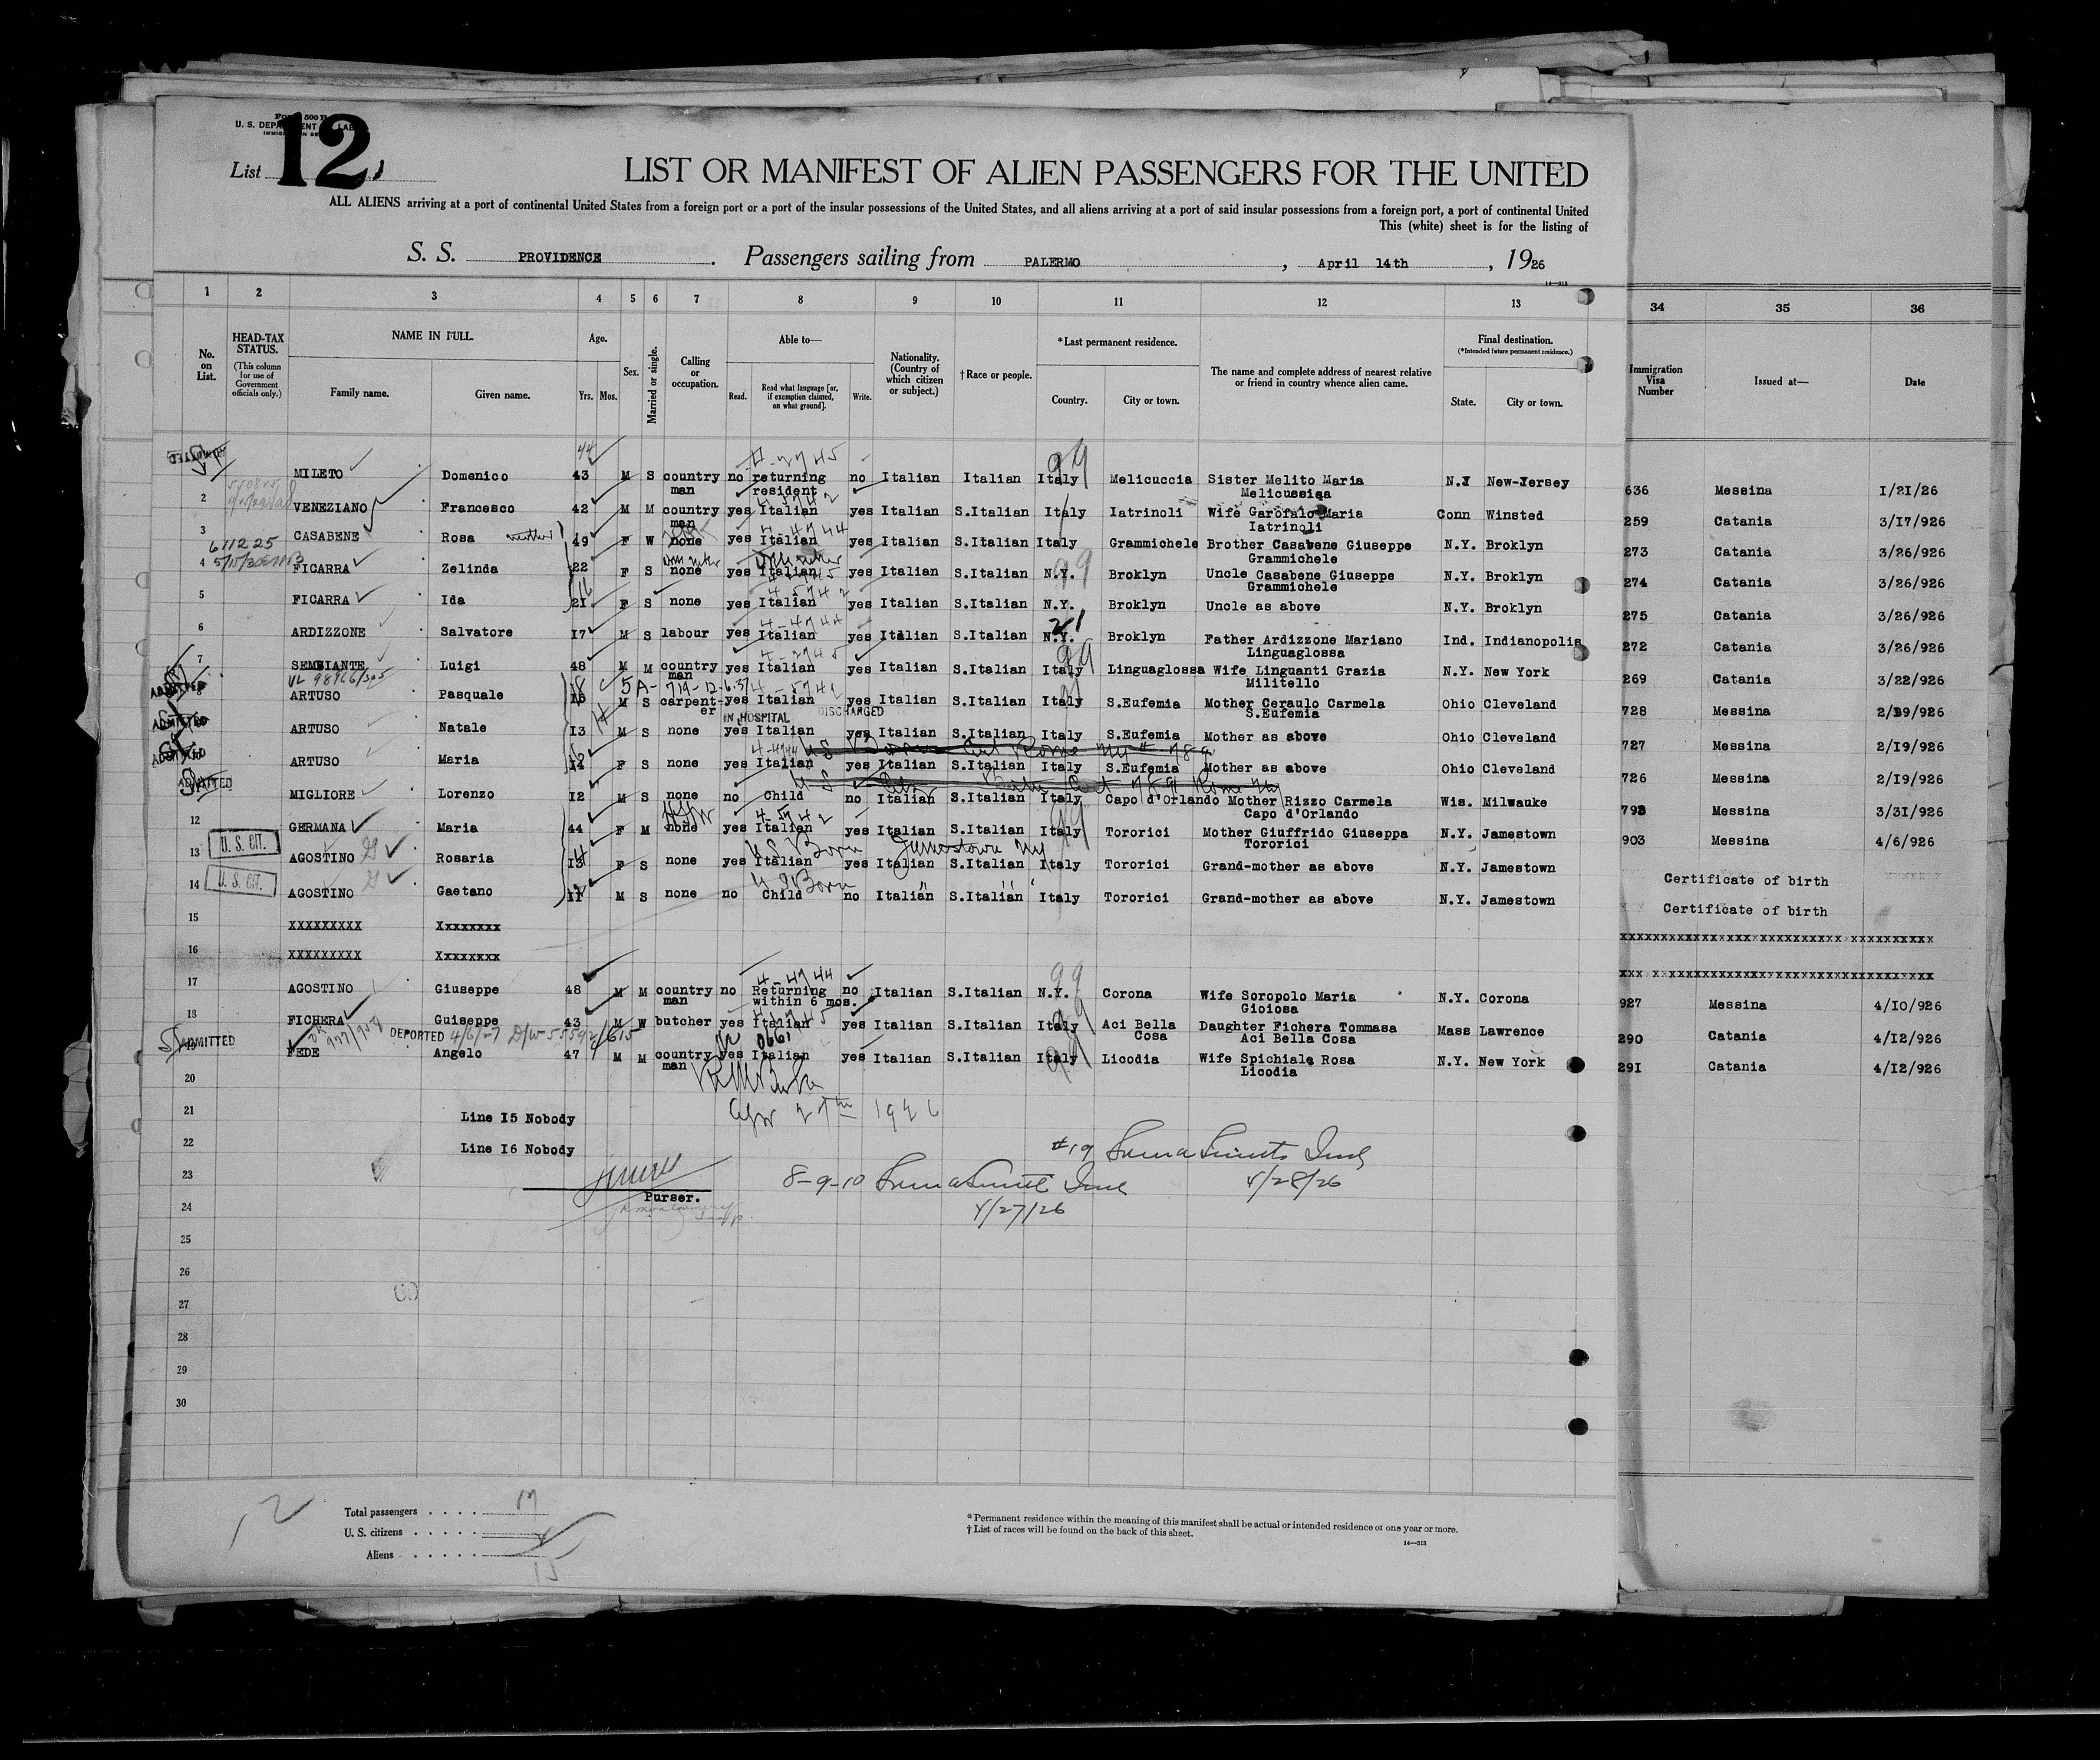 Form 500 B
U. S. DEPARTMENT OF LABOR
IMMIGRATION SERVICE
List 12
LIST OR MANIFEST OF ALIEN PASSENGERS FOR THE UNITED
ALL ALIENS arriving at a port of continental United States from a foreign port or a port of the insular possessions of the United States, and all aliens arriving at a port of said insular possessions from a foreign port, a port of continental United
This (white) sheet is for the listing of
S. S. PROVIDENCE. Passengers sailing from PALERMO, April 14th, 1926
14—213
1 2 3 4 5 6 7 8 9 10 11 12 13 34 35 36
No. on List.
HEAD-TAX STATUS.
(This column for use of Government officials only.)
NAME IN FULL.
Family name. Given name.
Age.
Yrs. Mos.
Sex.
Married or single.
Calling or occupation.
Able to—
Read. Read what language [or, if exemption claimed, on what ground]. Write.
Nationality. (Country of which citizen or subject.)
†Race or people.
*Last permanent residence.
Country. City or town.
The name and complete address of nearest relative or friend in country whence alien came.
Final destination.
(*Intended future permanent residence.)
State. City or town.
Immigration Visa Number
Issued at—
Date
44
MILETO Domenico 43 M S country man no returning resident no Italian Italian Italy Melicuccia Sister Melito Maria Melicussiqa N.J New-Jersey 636 Messina 1/21/26
2 VENEZIANO Francesco 42 M M country man yes Italian yes Italian S.Italian Italy Iatrinoli Wife Garofalo Maria Iatrinoli Conn Winsted 259 Catania 3/17/926
3 CASABENE Rosa mother 49 F W none yes Italian yes Italian S.Italian Italy Grammichele Brother Casabene Giuseppe Grammichele N.Y. Broklyn 273 Catania 3/26/926
611225
4 FICARRA Zelinda 22 F S none yes Italian yes Italian S.Italian N.Y. Broklyn Uncle Casabene Giuseppe Grammichele N.Y. Broklyn 274 Catania 3/26/926
5 FICARRA Ida 21 F S none yes Italian yes Italian S.Italian N.Y. Broklyn Uncle as above N.Y. Broklyn 275 Catania 3/26/926
6 ARDIZZONE Salvatore 17 M S labour yes Italian yes Italian S.Italian N.Y. Broklyn Father Ardizzone Mariano Linguaglossa Ind. Indianopolis 272 Catania 3/26/926
7 SEMBIANTE Luigi 48 M M country man yes Italian yes Italian S.Italian Italy Linguaglossa Wife Linguanti Grazia Militello N.Y. New York 269 Catania 3/22/926
ADMITTED ARTUSO Pasquale M S carpenter yes Italian yes Italian S.Italian Italy S.Eufemia Mother Ceraulo Carmela S.Eufemia Ohio Cleveland 728 Messina 2/19/926
IN HOSPITAL DISCHARGED
ADMITTED ARTUSO Natale 13 M S none yes Italian yes Italian S.Italian Italy S.Eufemia Mother as above Ohio Cleveland 727 Messina 2/19/926
ADMITTED ARTUSO Maria F S none yes Italian yes Italian S.Italian Italy S.Eufemia Mother as above Ohio Cleveland 726 Messina 2/19/926
ADMITTED MIGLIORE Lorenzo 12 M S none no Child no Italian S.Italian Italy Capo d'Orlando Mother Rizzo Carmela Capo d'Orlando Wis. Milwauke 793 Messina 3/31/926
12 GERMANA Maria 44 F M none yes Italian yes Italian S.Italian Italy Tororici Mother Giuffrido Giuseppa Tororici N.Y. Jamestown 903 Messina 4/6/926
U.S. Born Jamestown NY
13 U. S. CIT. AGOSTINO Rosaria 13 F S none yes Italian yes Italian S.Italian Italy Tororici Grand-mother as above N.Y. Jamestown Certificate of birth
U S Born
14 U. S. CIT. AGOSTINO Gaetano 11 M S none no Child no Italian S.Italian Italy Tororici Grand-mother as above N.Y. Jamestown Certificate of birth
15 XXXXXXXXX Xxxxxxxx
16 XXXXXXXXX Xxxxxxxx
17 AGOSTINO Giuseppe 48 M M country man no Returning within 6 mos. no Italian S.Italian N.Y. Corona Wife Soropolo Maria Gioiosa N.Y. Corona 927 Messina 4/10/926
18 FICHERA Guiseppe 43 M W butcher yes Italian yes Italian S.Italian Italy Aci Bella Cosa Daughter Fichera Tommasa Aci Bella Cosa Mass Lawrence 290 Catania 4/12/926
DEPORTED 4/6/27
ADMITTED 19 FEDE Angelo 47 M M country man yes Italian yes Italian S.Italian Italy Licodia Wife Spichiale Rosa Licodia N.Y. New York 291 Catania 4/12/926
20
Apr 27th 1926
21 Line 15 Nobody
22 Line 16 Nobody
#19
23 8-9-10
4/28/26
Purser.
24 4/27/26
25
26
27
28
29
30
12
Total passengers 17
U. S. citizens 2
Aliens 15
*Permanent residence within the meaning of this manifest shall be actual or intended residence of one year or more.
†List of races will be found on the back of this sheet.
14—213